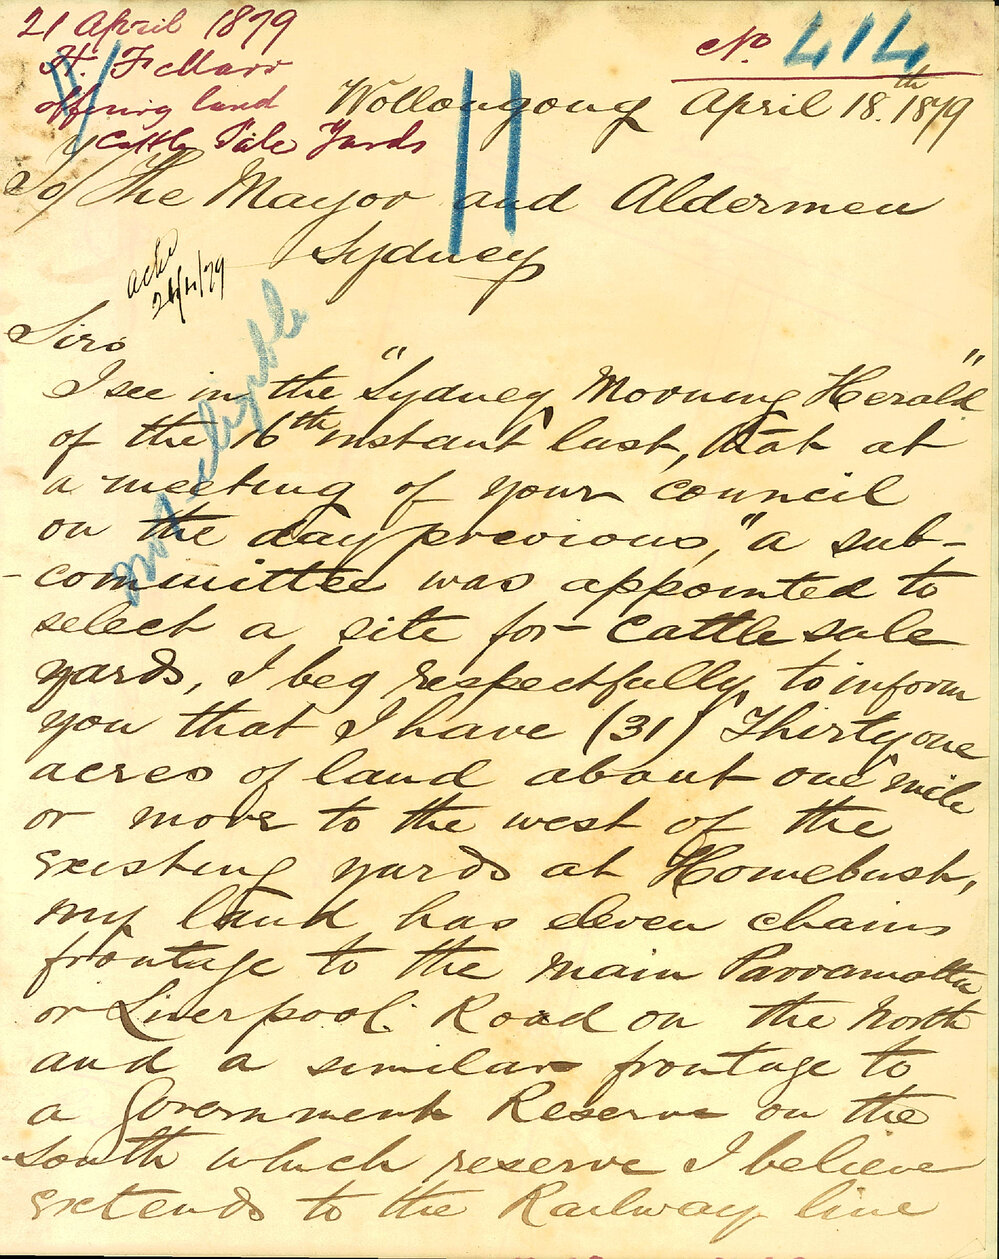 21 April 1879
H. F. Marr
offering land
Cattle Sale Yards
No. 414
11
Wollongong April 18.th 1879
To/ The Mayor and Aldermen
Sydney
ackd
21/4/79
not eligible
Sirs
I see in the "Sydney Morning Herald"
of the 16th instant last, that at
a meeting of your council
on the day previous, "a sub-
-committee was appointed to
select a site for cattle sale
yards, I beg respectfully to inform
you that I have (31) Thirty one
acres of land about one mile
or more to the west of the
existing yards at Homebush,
my land has eleven chains
frontage to the main Parramatta
or Liverpool Road on the North
and a similar frontage to
a Government Reserve on the
South which reserve I believe
extends to the Railway line